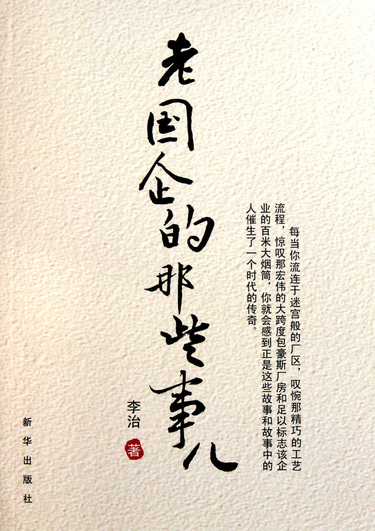 老国企的那些事儿
每当你流连于迷宫般的厂区，叹惋那精巧的工艺
流程，惊叹那宏伟的大跨度包豪斯厂房和足以标志该企
业的百米大烟筒，你就会感到正是这些故事和故事中的
人催生了一个时代的传奇。
李治 著
新华出版社